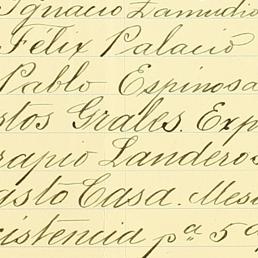 Ignacio Zamudio
Félix Palacio
Pablo Espinosa
stos Grales. Exp
rapio Landeros
asto Casa. Mes
istencia pª 5